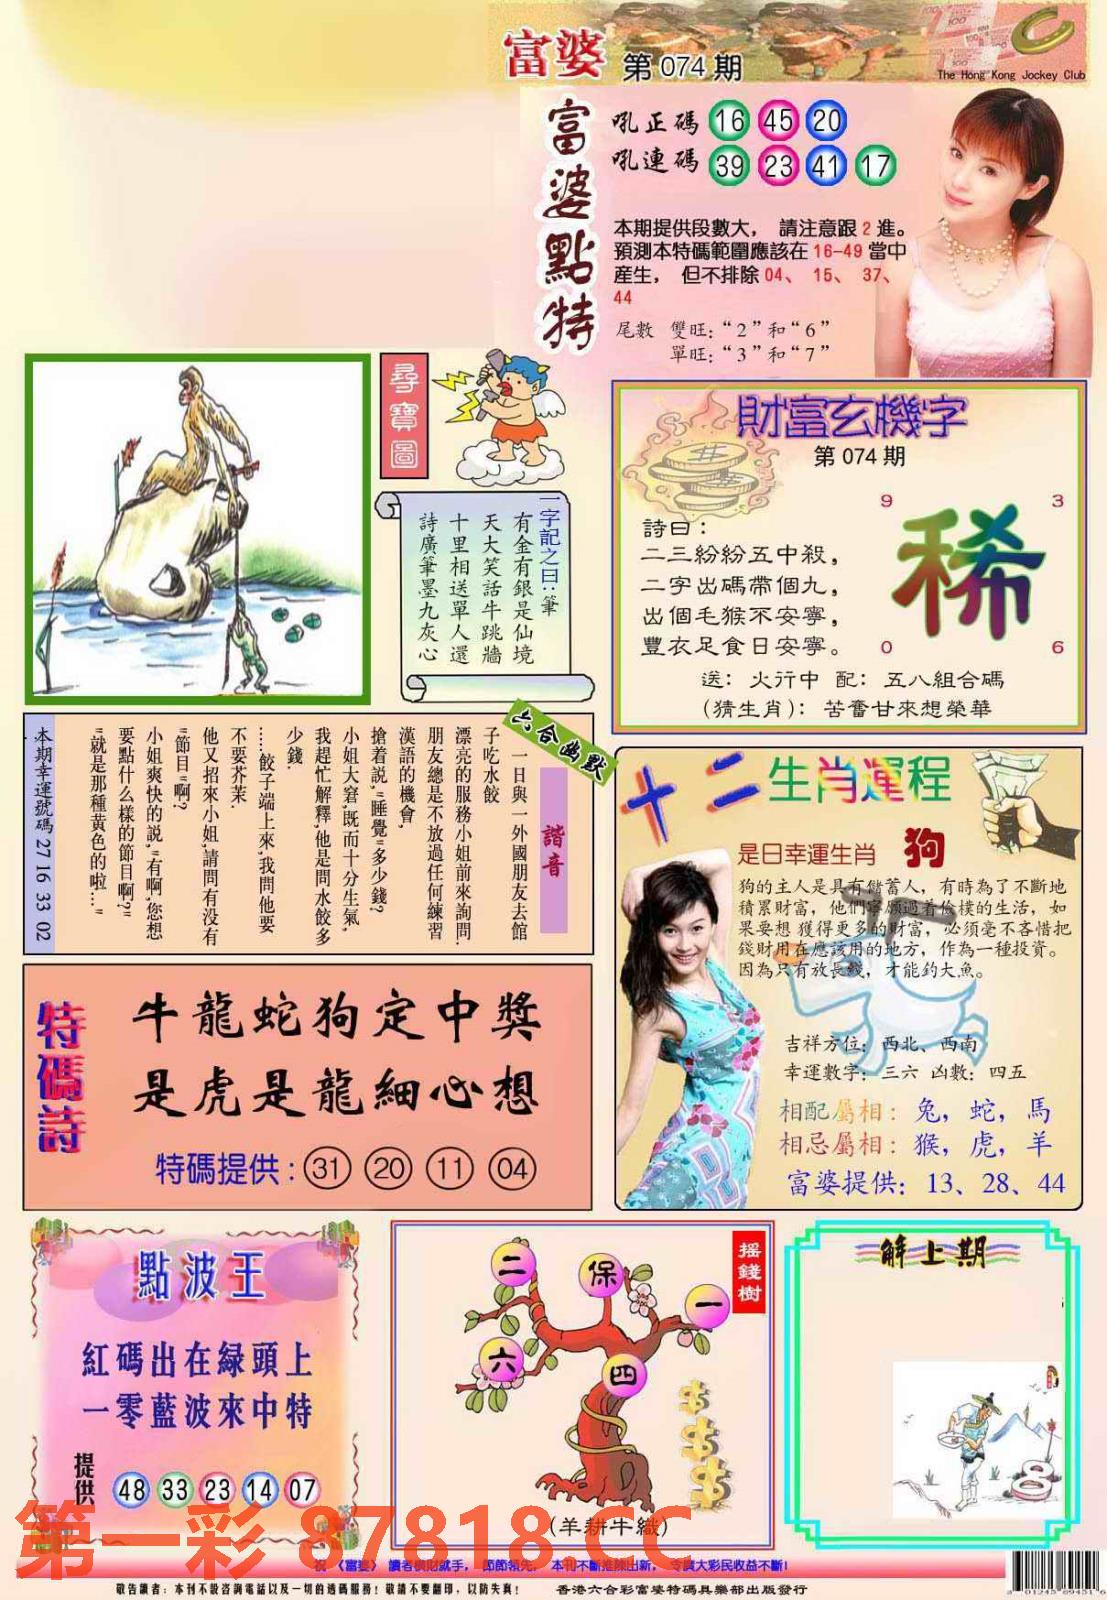 富婆 第074期
The Hong Kong Jockey Club
富婆點特
吼正碼 16 45 20
吼連碼 39 23 41 17
本期提供段數大， 請注意跟2進。
預測本特碼範圍應該在16-49當中
産生， 但不排除04、 15、 37、
44
尾數 雙旺:“2”和“6”
單旺:“3”和“7”
尋寶圖
一字記之曰:筆
有金有銀是仙境
天大笑話牛跳牆
十里相送單人還
詩廣筆墨九灰心
財富玄機字
第074期
9 3
稀
0 6
詩曰:
二三紛紛五中殺，
二字出碼帶個九，
出個毛猴不安寧，
豐衣足食日安寧。
送: 火行中 配: 五八組合碼
(猜生肖): 苦奮甘來想榮華
六合幽默
諧音
一日與一外國朋友去館
子吃水餃
漂亮的服務小姐前來詢問.
朋友總是不放過任何練習
漢語的機會,
搶着説,"睡覺"多少錢?
小姐大窘,既而十分生氣,
我趕忙解釋,他是問水餃多
少錢.
……餃子端上來,我問他要
不要芥茉.
他又招來小姐,請問有没有
"節目"啊?
小姐爽快的説,"有啊,您想
要點什么樣的節目啊?"
"就是那種黄色的啦…"
本期幸運號碼 27 16 33 02
十二生肖運程
是日幸運生肖 狗
狗的主人是具有儲蓄人，有時為了不斷地
積累財富，他們寧願過着儉樸的生活，如
果要想獲得更多的財富，必須毫不吝惜把
錢財用在應該用的地方，作為一種投資。
因為只有放長綫，才能釣大魚。
吉祥方位: 西北、西南
幸運數字: 三六 凶數: 四五
相配屬相: 兔，蛇，馬
相忌屬相: 猴，虎，羊
富婆提供: 13、28、44
特碼詩
牛龍蛇狗定中獎
是虎是龍細心想
特碼提供: 31 20 11 04
點波王
紅碼出在緑頭上
一零藍波來中特
提供 48 33 23 14 07
摇錢樹
二 保 一
六 四
(羊耕牛織)
解上期
第一彩 87818.CC
祝《富婆》 讀者横財就手， 節節領先， 本刊不斷推陳出新， 令廣大彩民收益不斷!
敬告讀者: 本刊不設咨詢電話以及一切的透碼服務! 敬請不要翻印，以防失真! 香港六合彩富婆特碼具樂部出版發行